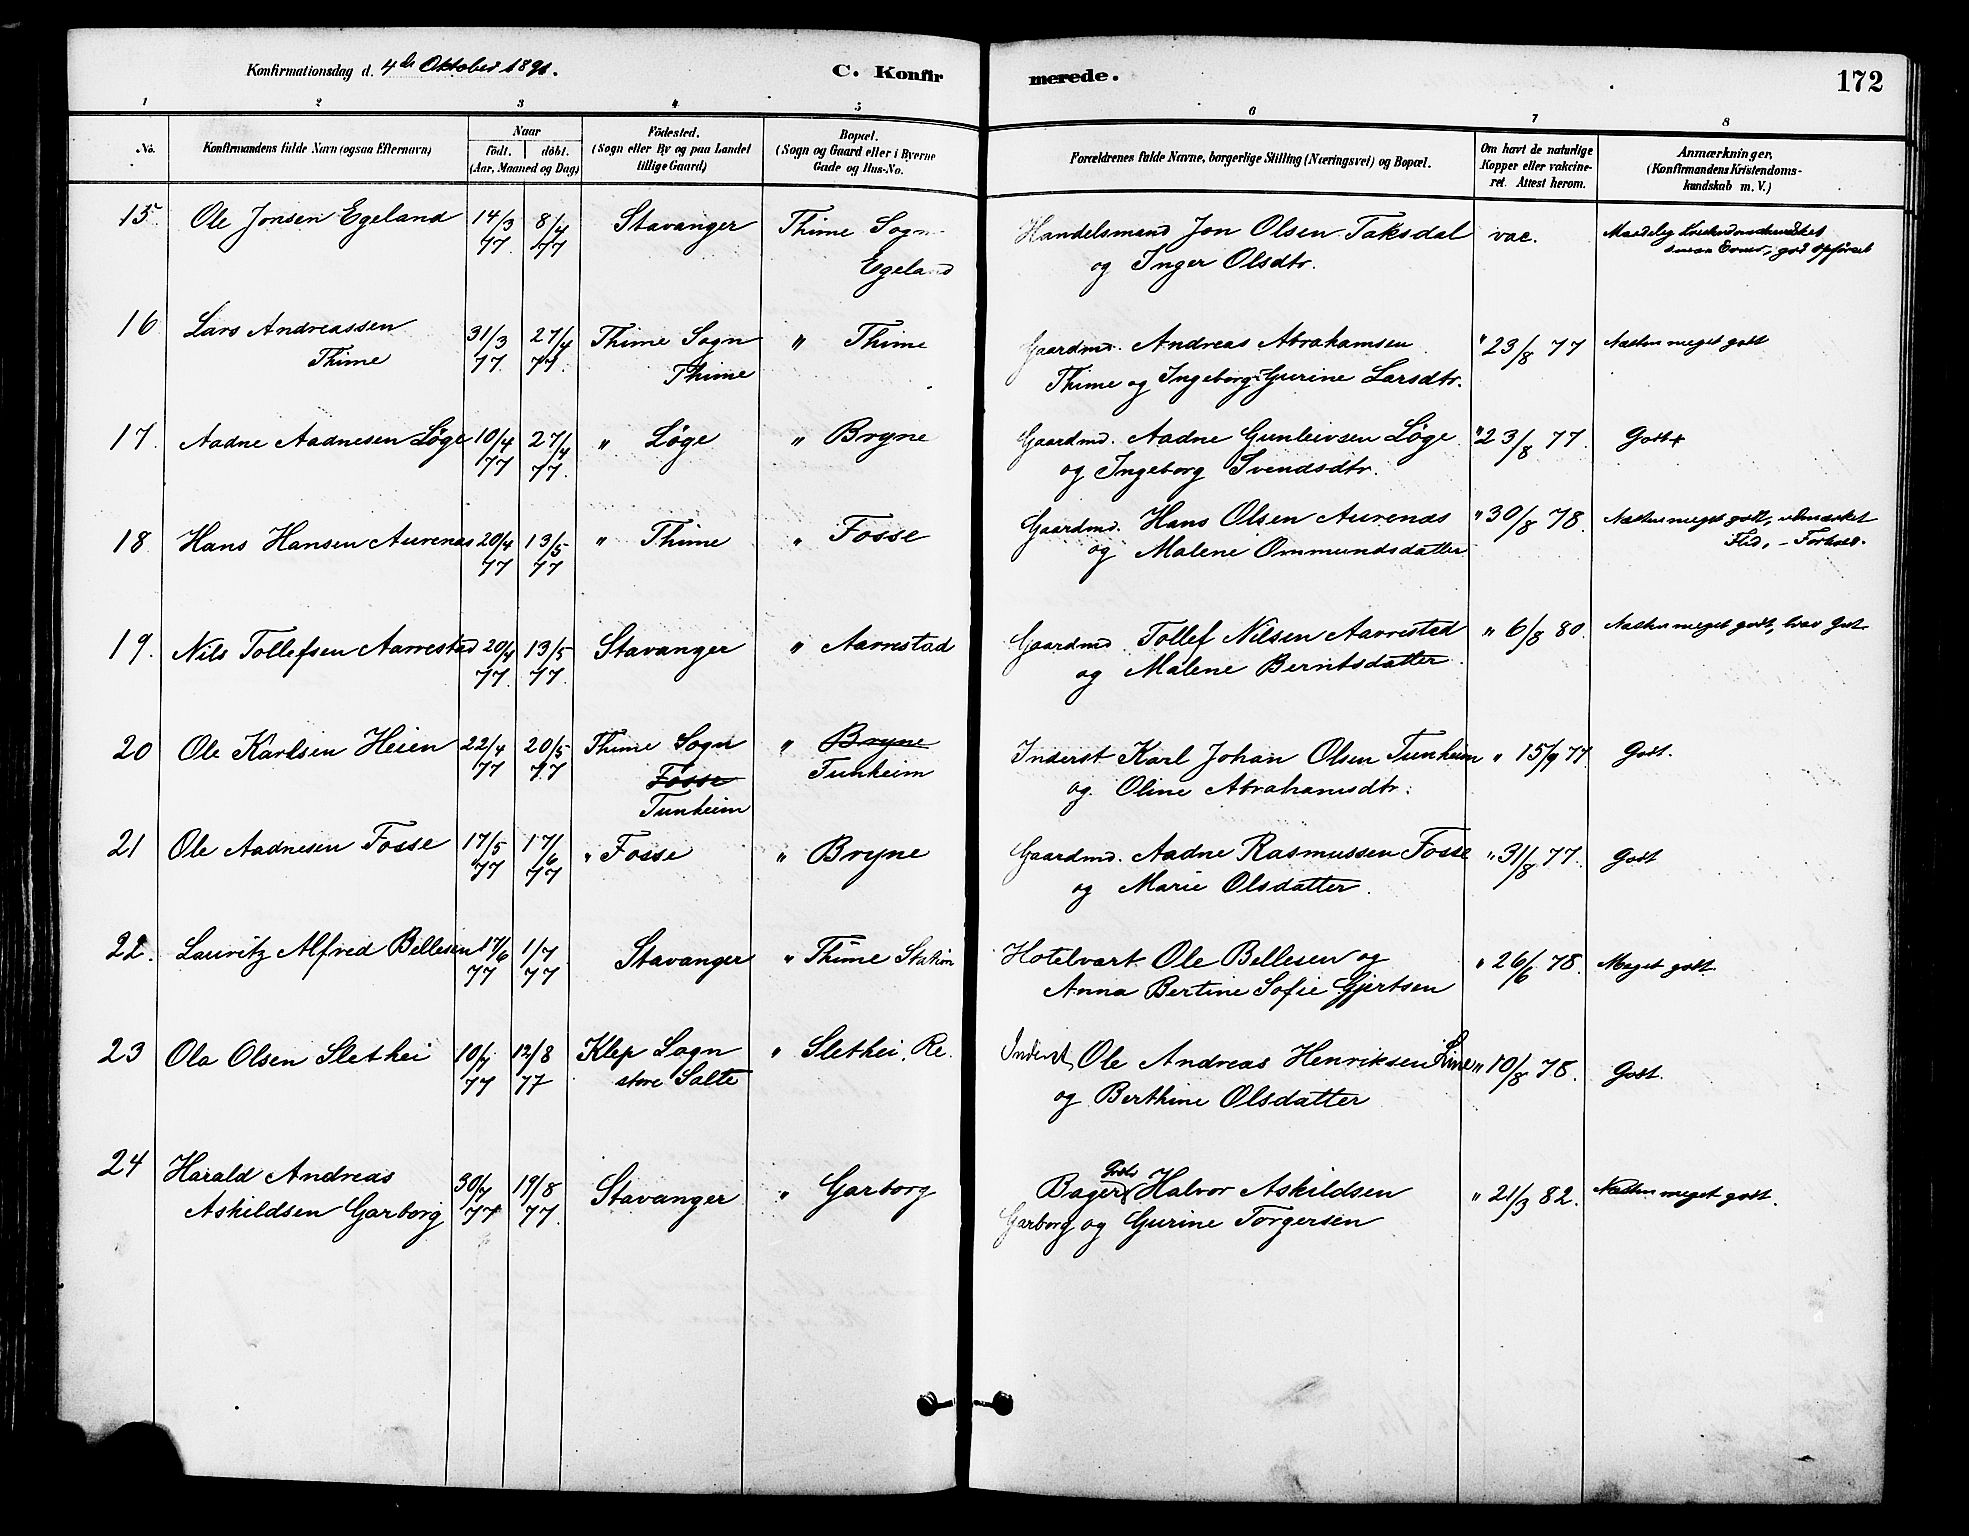 Konfirmationsdag d. 4de Oktober 1891.
C. Konfirmerede.
172
1 2 3 4 5 6 7 8
No.
Konfirmandens fulde Navn (ogsaa Efternavn)
Naar
födt. döbt.
(Aar, Maaned og Dag)
Födested.
(Sogn eller By og paa Landet
tillige Gaard)
Bopæl.
(Sogn og Gaard eller i Byerne
Gade og Hus-No.
Forældrenes fulde Navne, borgerlige Stilling (Næringsvei) og Bopæl.
Om havt de naturlige
Kopper eller vakcine-
ret. Attest herom.
Anmærkninger,
(Konfirmandens Kristendoms-
kundskab m. V.)
15 Ole Jonsen Egeland 14/3 77. 8/4 77 Stavanger Thime Sogn
Egeland
Handelsmand Jon Olsen Taksdal vac.
og Inger Olsdtr.
god Opførsel
16 Lars Andreassen
Thime
31/3 77. 27/4 77. Thime Sogn
Thime
" Thime
Gaardmd. Andreas Abrahamsen " 23/8 77 Næsten meget godt
Thime og Ingeborg Gurine Larsdtr.
17. Aadne Aadnesen Løge 10/4 77 27/4 77. " Løge " Bryne
Gaardmd. Aadne Gunleivsen Løge " 23/8 77. Godt
og Ingeborg Svendsdtr.
18 Hans Hansen Aurenas 20/4 77 13/5 77 " Thime " Fosse
Gaardmd. Hans Olsen Aurenas " 30/8 78. Næsten meget godt, udmærket
og Malene Ommundsdatter Flid, - Forhold.
19. Nils Tollefsen Aarrestad 20/4 77. 13/5 77. Stavanger " Aarrestad
Gaardmd. Tollef Nilsen Aarrestad " 6/8 80. Næsten meget godt, brav Gut
og Malene Berntsdatter.
20 Ole Karlsen Heien 22/4 77 20/5 77 Thime Sogn " Bryne
Fosse Tunheim
Tunheim
Inderst Karl Johan Olsen Tunheim " 15/9 77 Godt.
og Oline Abrahamsdtr.
21 Ole Aadnesen Fosse 17/5 77 17/6 77 " Fosse " Bryne
Gaardmd. Aadne Rasmussen Fosse " 31/8 77. Godt
og Marie Olsdatter.
22. Lauritz Alfred Bellesen 17/6 77 1/7 77 Stavanger " Thime Station
Hotelvært Ole Bellesen og " 26/6 78. Meget godt
Anna Bertine Sofie Gjertsen
23 Ola Olsen Slethei 10/7 77 12/8 77 Klep Sogn " Slethei, Re.
store Salte
Inderst Ole Andreas Henriksen Line " 10/8 78. Godt.
og Berthine Olsdatter
24 Harald Andreas
Askildsen Garborg
30/7 77 19/8 77. Stavanger " Garborg
Bager Halvor Askildsen " 21/3 82. Næsten meget godt.
Garborg og Gurine Torgersen